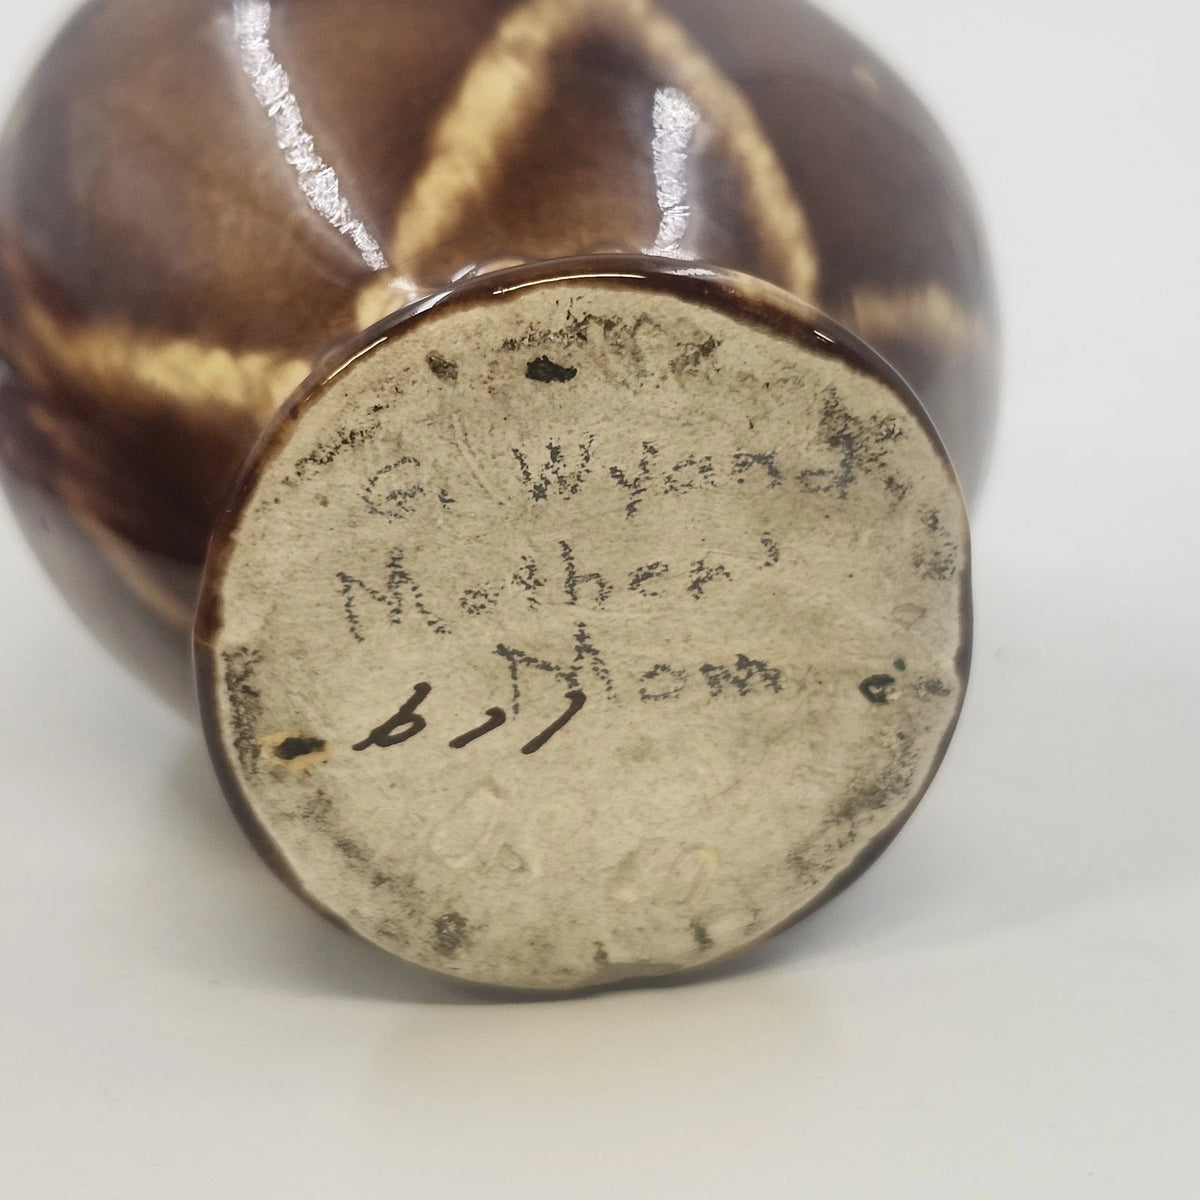 G. Wyand
Mother'
Mom
677